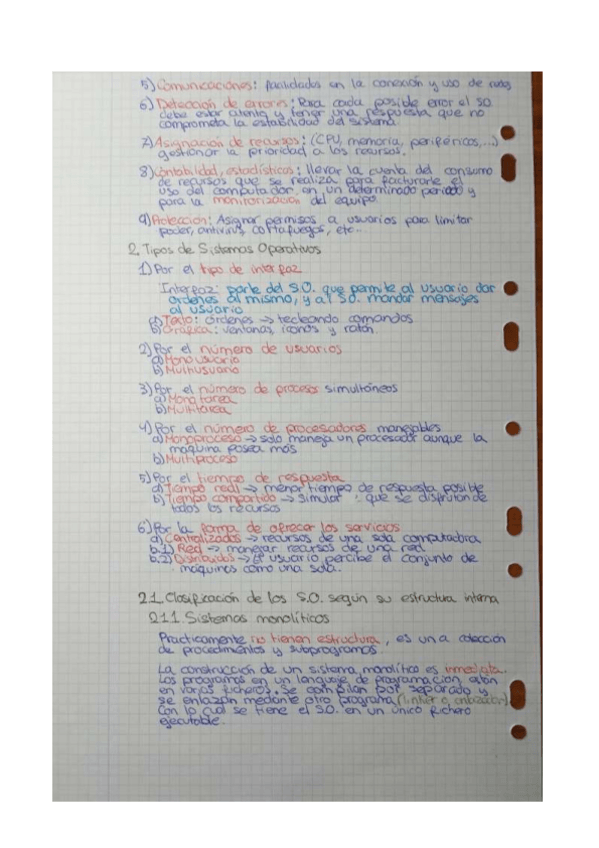 5) Comunicaciones: facilidades en la conexión y uso de redes
6) Detección de errores: Para cada posible error el SO
debe estar atento y tener una respuesta que no
comprometa la estabilidad del sistema.
7) Asignación de recursos: (CPU, memoria, periféricos,...)
gestionar la prioridad a los recursos.
8) Contabilidad, estadísticas: llevar la cuenta del consumo
de recursos que se realiza para facturarle el
uso del computador en un determinado periodo y
para la monitorización del equipo.
9) Protección: Asignar permisos a usuarios para limitar
poder, antivirus, cortafuegos, etc...
2. Tipos de Sistemas Operativos
1) Por el tipo de interfaz
Interfaz: parte del S.O. que permite al usuario dar
órdenes al mismo, y al S.O. mandar mensajes
al usuario
a) Texto: órdenes → tecleando comandos
b) Gráfica: ventanas, iconos y ratón
2) Por el número de usuarios
a) Monousuario
b) Multiusuario
3) Por el número de procesos simultáneos
a) Monotarea
b) Multitarea
4) Por el número de procesadores manejables
a) Monoproceso → solo maneja un procesador aunque la
máquina posea más
b) Multiproceso
5) Por el tiempo de respuesta
a) Tiempo real → menor tiempo de respuesta posible
b) Tiempo compartido → simular que se disfrutan de
todos los recursos
6) Por la forma de ofrecer los servicios
a) Centralizados → recursos de una sola computadora
b.1) Red → manejar recursos de una red
b.2) Distribuidos → El usuario percibe el conjunto de
máquinas como una sola.
2.1. Clasificación de los S.O. según su estructura interna
2.1.1. Sistemas monolíticos
Practicamente no tienen estructura, es una colección
de procedimientos y subprogramas.
La construcción de un sistema monolítico es inmediata.
Los programas en un lenguaje de programación están
en varios ficheros. Se compilan por separado y
se enlazan mediante otro programa (linker o enlazador).
Con lo cual se tiene el S.O. en un único fichero
ejecutable.